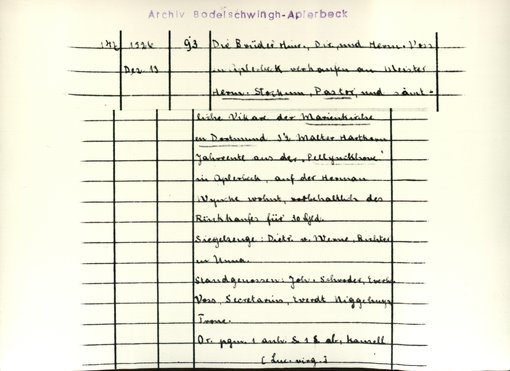 Archiv Bodelschwingh-Aplerbeck
1526 93 Die Brüder Hinr., Dir. und Herm. Voss
Dez. 13 in Aplerbeck verkaufen an Meister
Herm. Stockum, Pastor, und sämt-
liche Vikare der Marienkirche
en Dortmund 3½ Malter Hartkorn
Jahrrente aus der "Pellynckhove"
in Aplerbeck, auf der Herman
Wynche wohnt, vorbehaltlich des
Rückkaufes für 30 Gld.
Siegelzeuge: Dietr. v. Werne, Richter
in Unna.
Standgenossen: Joh. Schroder, Everh
Voss, Secretarius, Everdt Niggehuys
Frone.
Or. pgm. 1 anh. S 1 S ab,
(Luc. virg.)